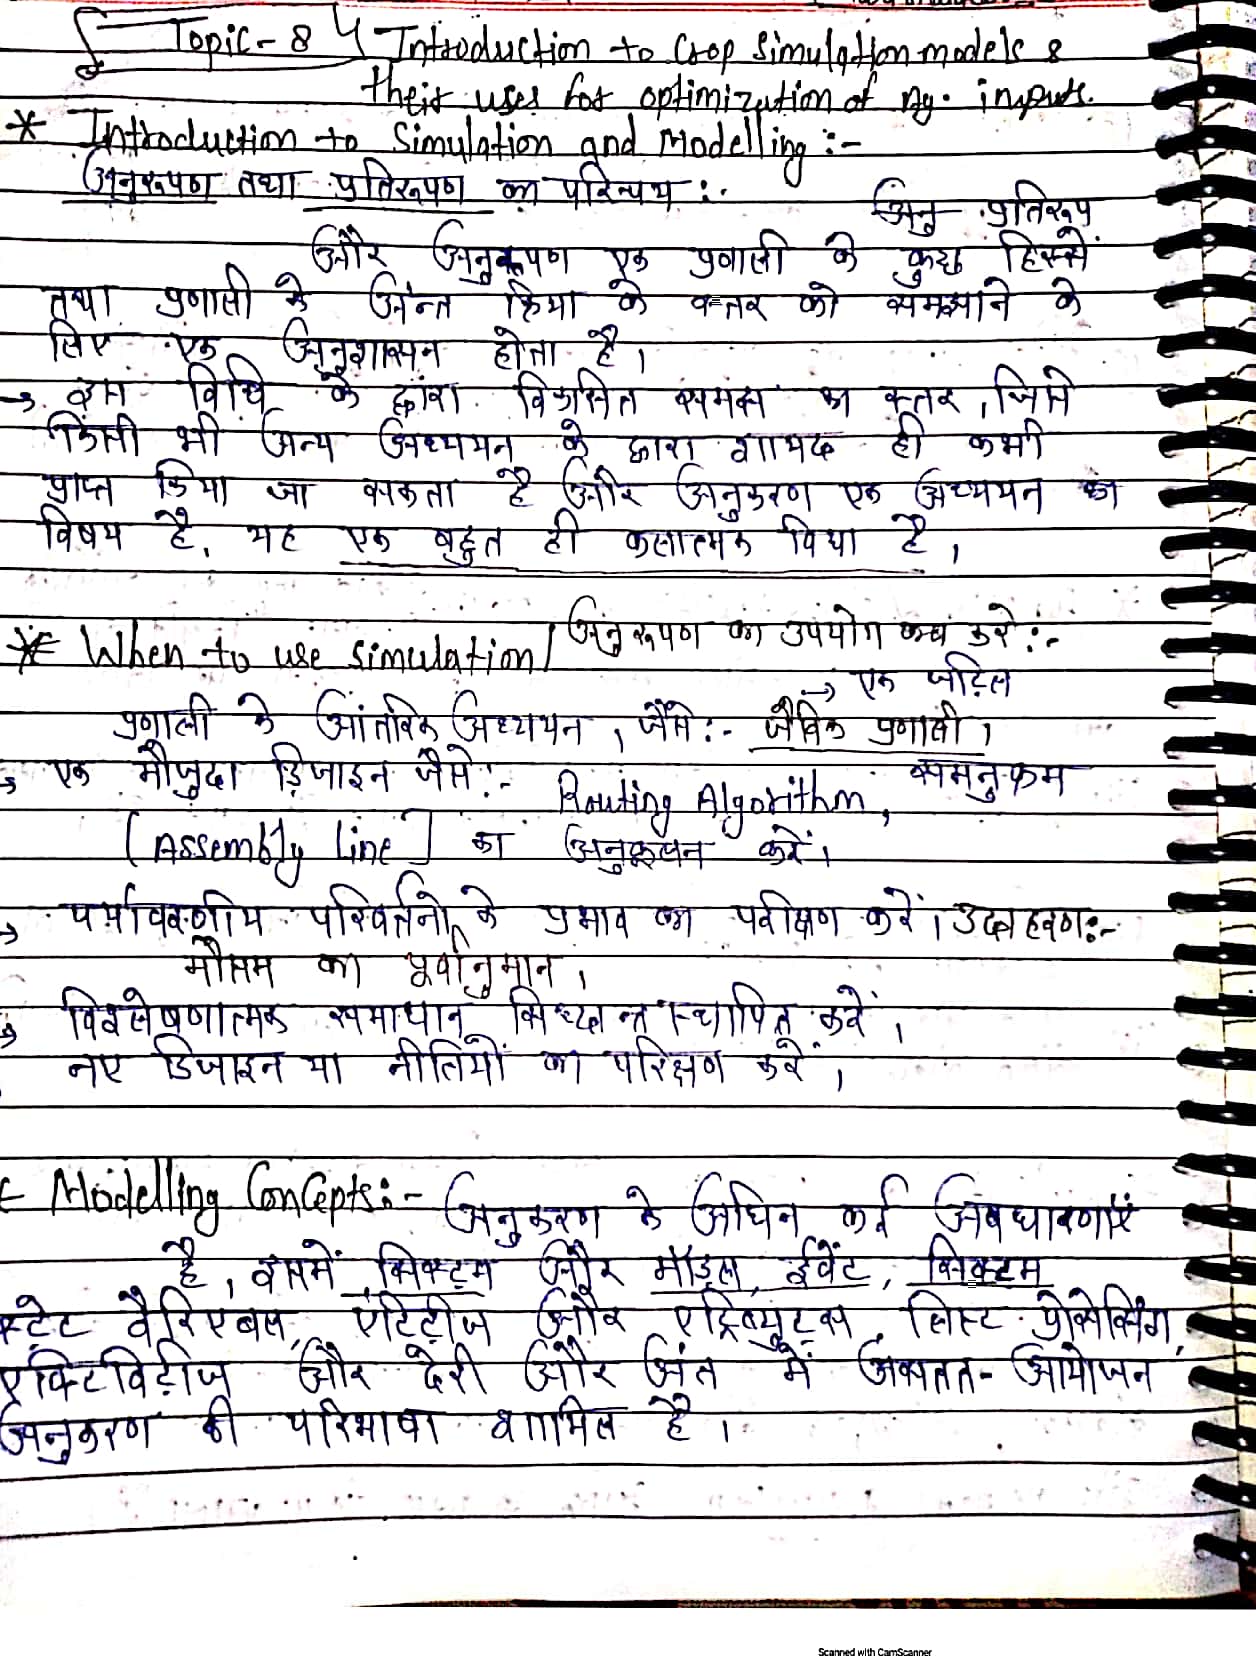 Topic-8 Introduction to Crop Simulation models &
their uses for optimization of Ag. inputs.
* Introduction to Simulation and Modelling :-
अनुरूपण तथा प्रतिरूपण का परिचय :-
अनु प्रतिरूप
और अनुरूपण एक प्रणाली के कुछ हिस्से
तथा प्रणाली के अन्त क्रिया के स्तर को समझाने के
लिए एक अनुशासन होता है।
→ इस विधि के द्वारा विकसित समक्ष का स्तर, जिसे
किसी भी अन्य अध्ययन के द्वारा शायद ही कभी
प्राप्त किया जा सकता है और अनुकरण एक अध्ययन का
विषय है, यह एक बहुत ही कलात्मक विधा है,
* When to use simulation / अनुरूपण का उपयोग कब करें :-
→ एक जटिल
प्रणाली के आंतरिक अध्ययन, जैसे :- जैविक प्रणाली।
→ एक मौजुदा डिजाइन जैसे :- Routing Algorithm, समनुक्रम
[Assembly Line] का अनुकूलन करें।
→ पर्यावरणीय परिवर्तनो के प्रभाव का परीक्षण करें। उदाहरण :-
मौसम का पूर्वानुमान,
→ विश्लेषणात्मक समाधान सिध्दान्त स्थापित करें,
नए डिजाइन या नीतियों का परिक्षण करें,
Modelling Concepts :- अनुकरण के अधिन कई अवधारणाएं
है, इसमें सिस्टम और मॉडल, ईवेंट, सिस्टम
स्टेट वैरिएबल, एंटिटीज और एट्रिब्युट्स, लिस्ट प्रोसेसिंग,
एक्टिविटीज और देरी और अंत में असतत- आयोजन
अनुकरण की परिभाषा शामिल है।
Scanned with CamScanner